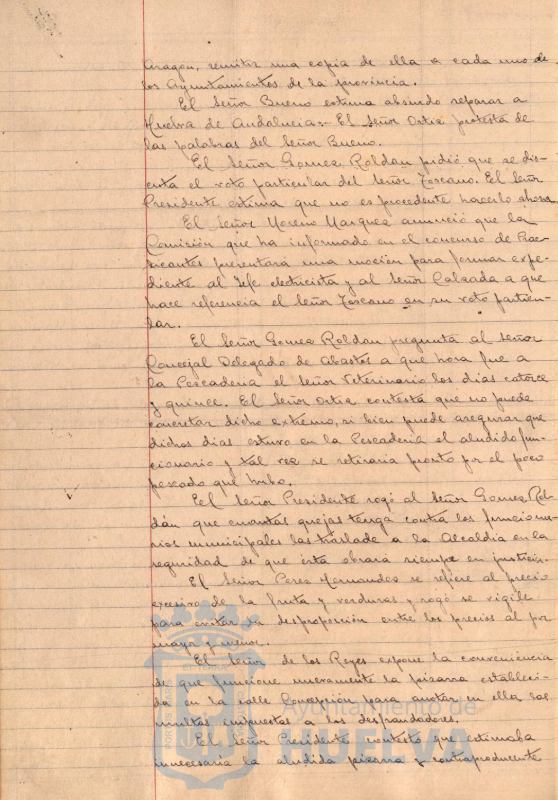 Aragon, remitir una copia de ella a cada uno de
los Ayuntamientos de la provincia.
El Señor Bueno estima absurdo separar a
Huelva de Andalucia.- El Señor Ortiz protesta de
las palabras del Señor Bueno.
El Señor Gomez Roldan pidió que se dis-
cuta el voto particular del Señor Toscano. El Señor
Presidente estima que no es procedente hacerlo ahora
El Señor Moreno Marquez anunció que la
Comisión que ha informado en el concurso de Prac-
ticantes presentará una moción para formar expe-
diente al Jefe electricista y al Señor Calzada a que
hace referencia el Señor Toscano en su voto particu-
lar.
El Señor Gomez Roldan pregunta al Señor
Concejal Delegado de Abastos a que hora fue a
la Pescaderia el Señor Veterinario los dias catorce
y quince. El Señor Ortiz contesta que no puede
concretar dicho extremo, si bien puede asegurar que
dichos dias estuvo en la Pescaderia el aludido fun-
cionario y tal vez se retiraria pronto por el poco
pescado que hubo.
El Señor Presidente rogó al Señor Gomez Rol-
dán que cuantas quejas tenga contra los funciona-
rios municipales las traslade a la Alcaldia en la
seguridad de que ésta obrará siempre en justicia.
El Señor Perez Hernandez se refiere al precio
excesivo de la fruta y verduras y rogó se vigile
para evitar la desproporción entre los precios al por
mayor y menor.
El Señor de los Reyes expone la conveniencia
de que funcione nuevamente la pizarra estableci-
da en la calle Concepción para anotar en ella las
multas impuestas a los defraudadores.
El Señor Presidente contestó que estimaba
innecesaria la aludida pizarra y contraproducente
Ayuntamiento de
HUELVA